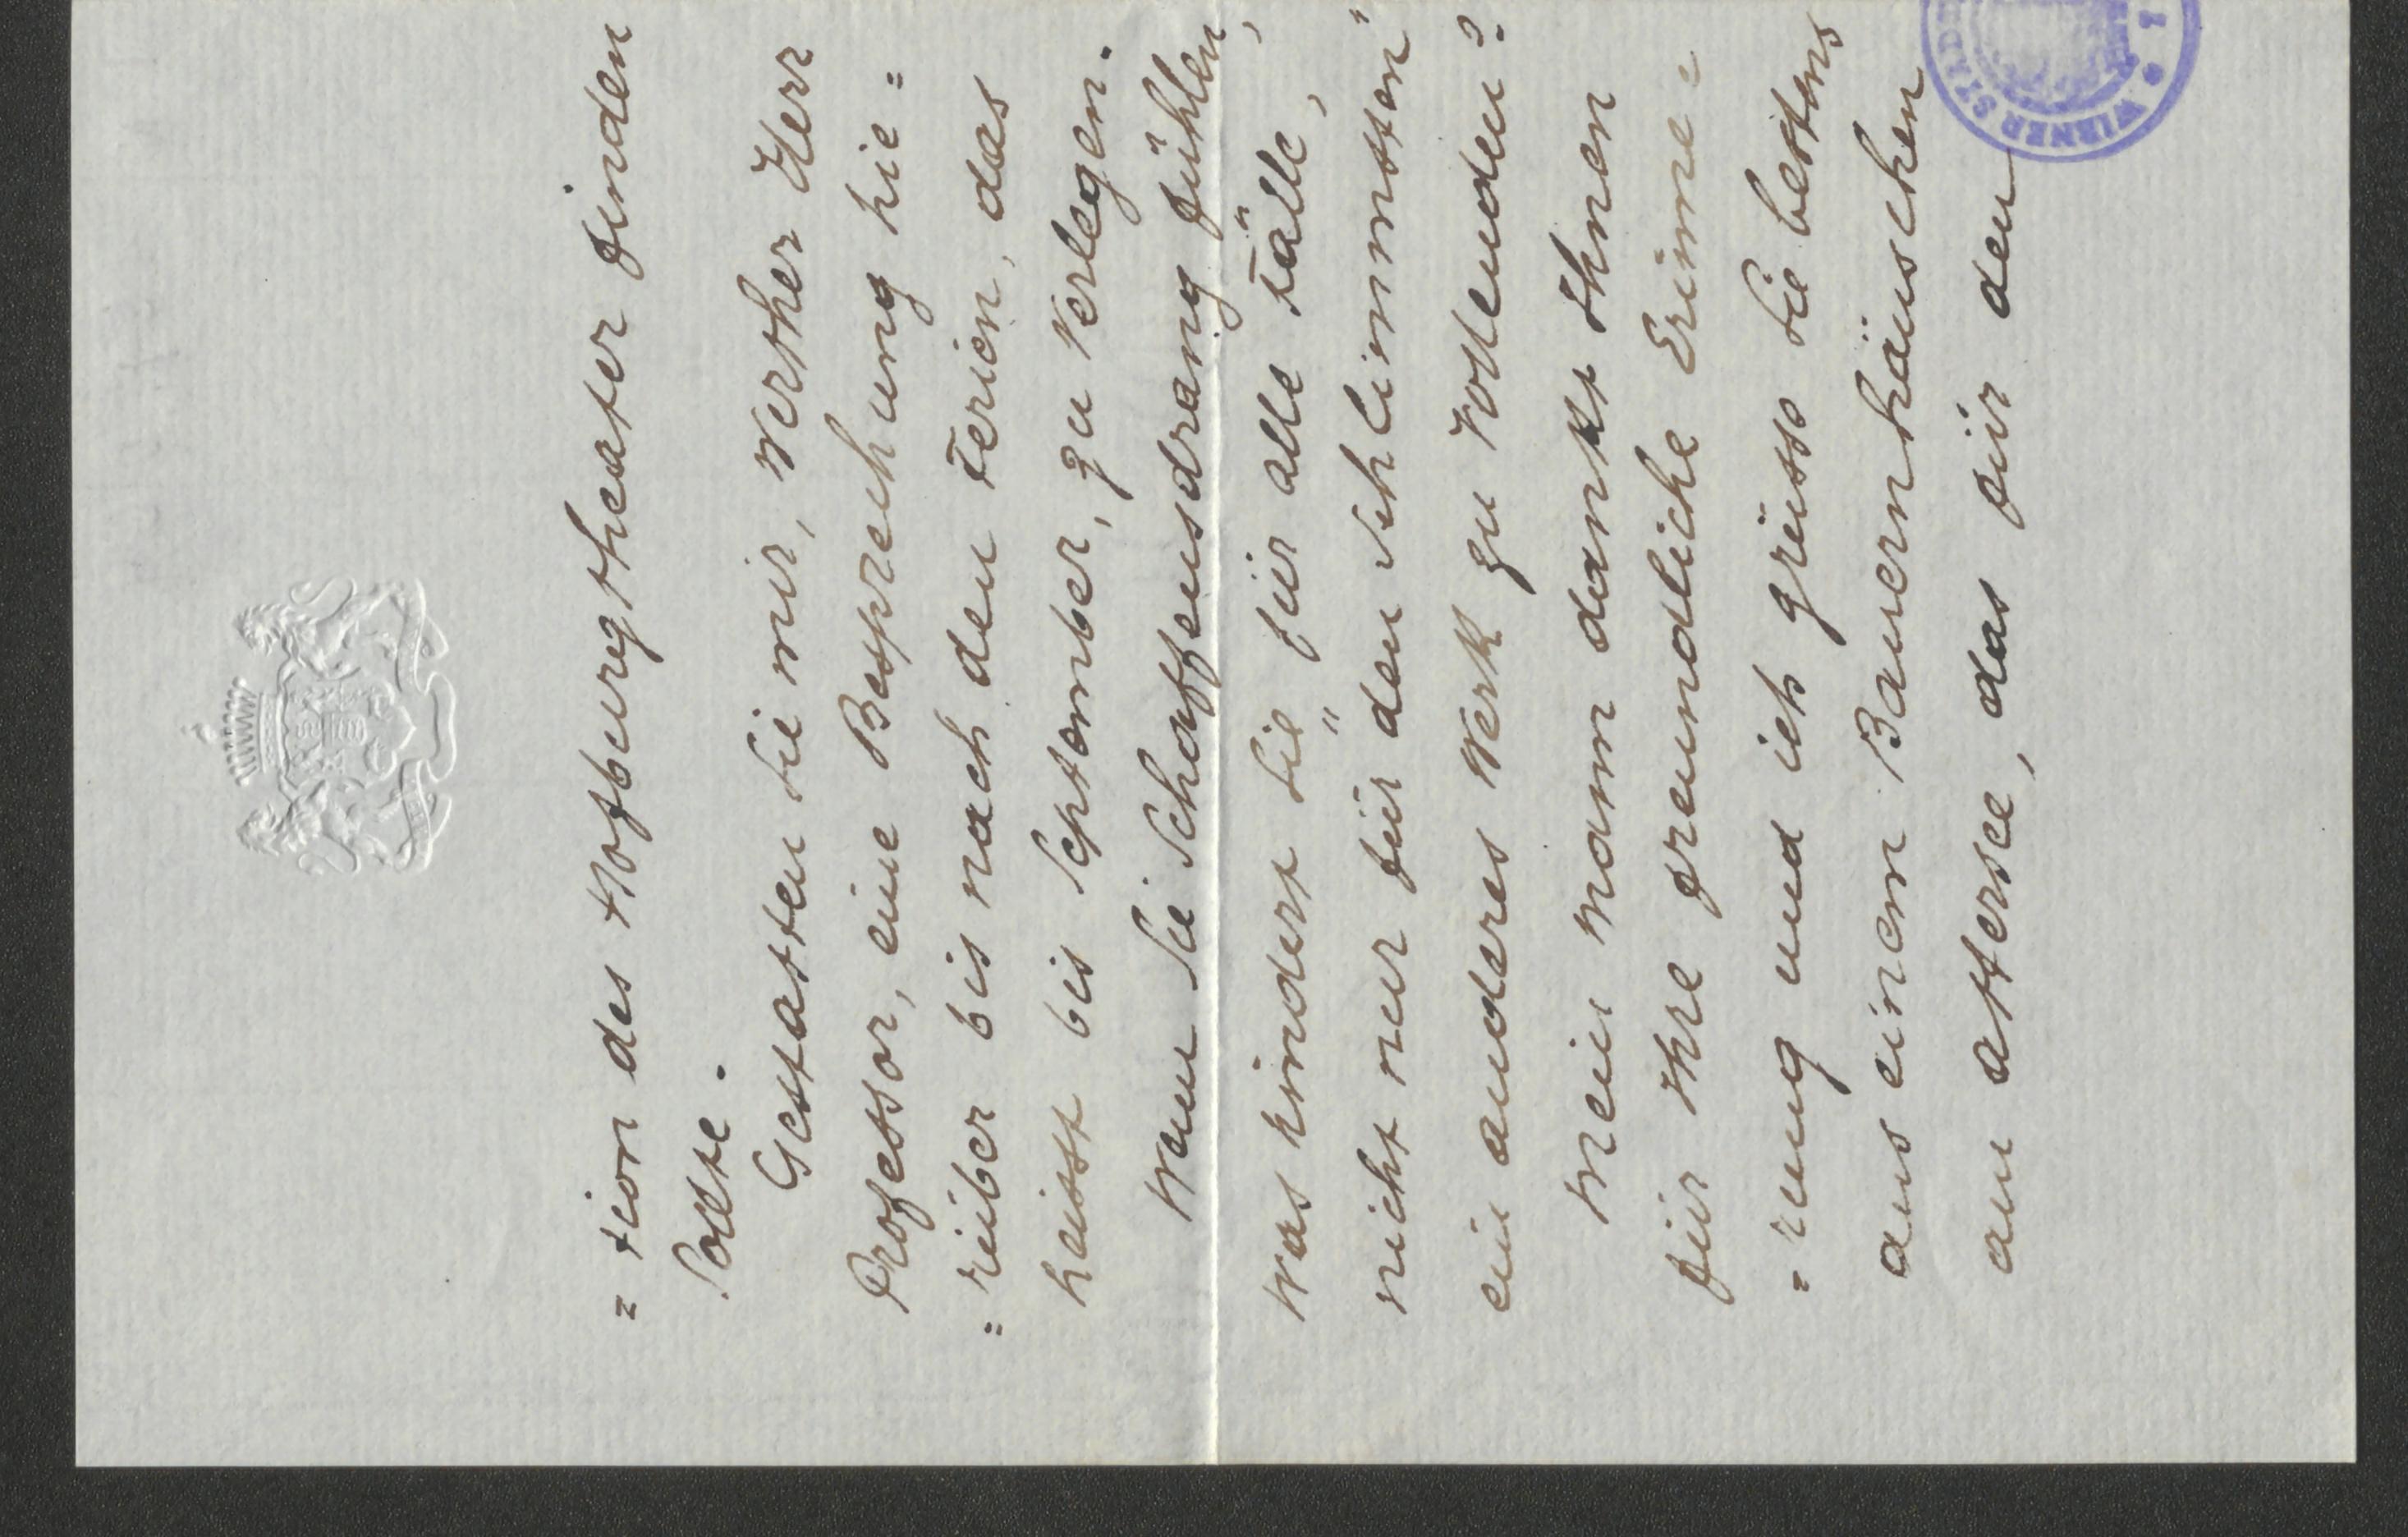 = tion des Hofburgtheater finden
Sollte.
Gestatten Sie mir, werther Herr
Professor, eine Besprechung hie =
= rüber bis nach den Ferien, das
heisst bis September, zu verlegen.
Wenn Sie Schaffensdrang fühlen,
was hindert Sie für alle Fälle,
nicht nur für den „Schlimmsten"
ein anderes Werk zu vollenden?
Mein Mann dankt Ihnen
für Ihre freundliche Erinne =
= rung und ich grüsse Sie bestens
aus einem Bauernhäuschen
am Attersee, das für den
WIENER